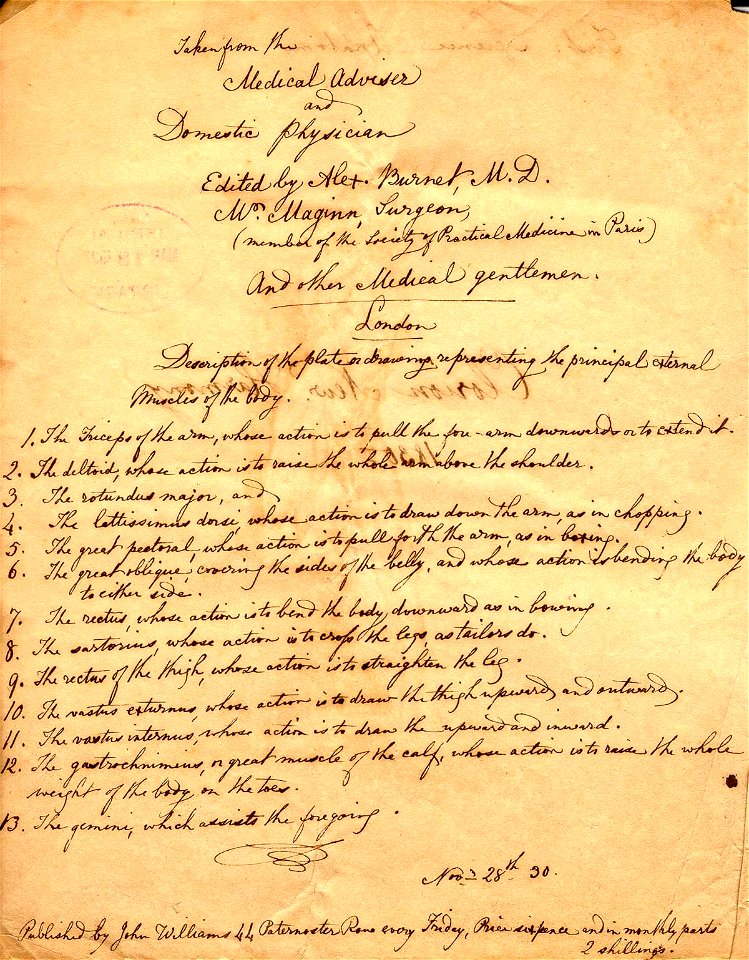 Taken from the
Medical Adviser
and
Domestic Physician
Edited by Alex. Burnet, M.D.
Mr. Maginn, Surgeon,
(member of the Society of Practical Medicine in Paris)
And other Medical gentlemen.
London
Description of the plate or drawing, representing the principal external
Muscles of the body.
1. The Triceps of the arm, whose action is to pull the fore-arm downwards or to extend it.
2. The deltoid, whose action is to raise the whole arm above the shoulder.
3. The rotundus major, and
4. The lattissimus dorsi, whose action is to draw down the arm, as in chopping.
5. The great pectoral, whose action is to pull forth the arm, as in boxing.
6. The great oblique, covering the sides of the belly, and whose action is bending the body
to either side.
7. The rectus, whose action is to bend the body, downward as in bowing.
8. The sartorius, whose action is to cross the legs, as tailors do.
9. The rectus of the thigh, whose action is to straighten the leg.
10. The vastus externus, whose action is to draw the thigh upward, and outward.
11. The vastus internus, whose action is to draw the upward and inward.
12. The gastrochnimius, or great muscle of the calf, whose action is to raise the whole
weight of the body, on the toes.
13. The gemini, which assists the foregoing.
Nov. 28th 30.
Published by John Williams 44 Paternoster Row every Friday, Price sixpence and in monthly parts
2 shillings.